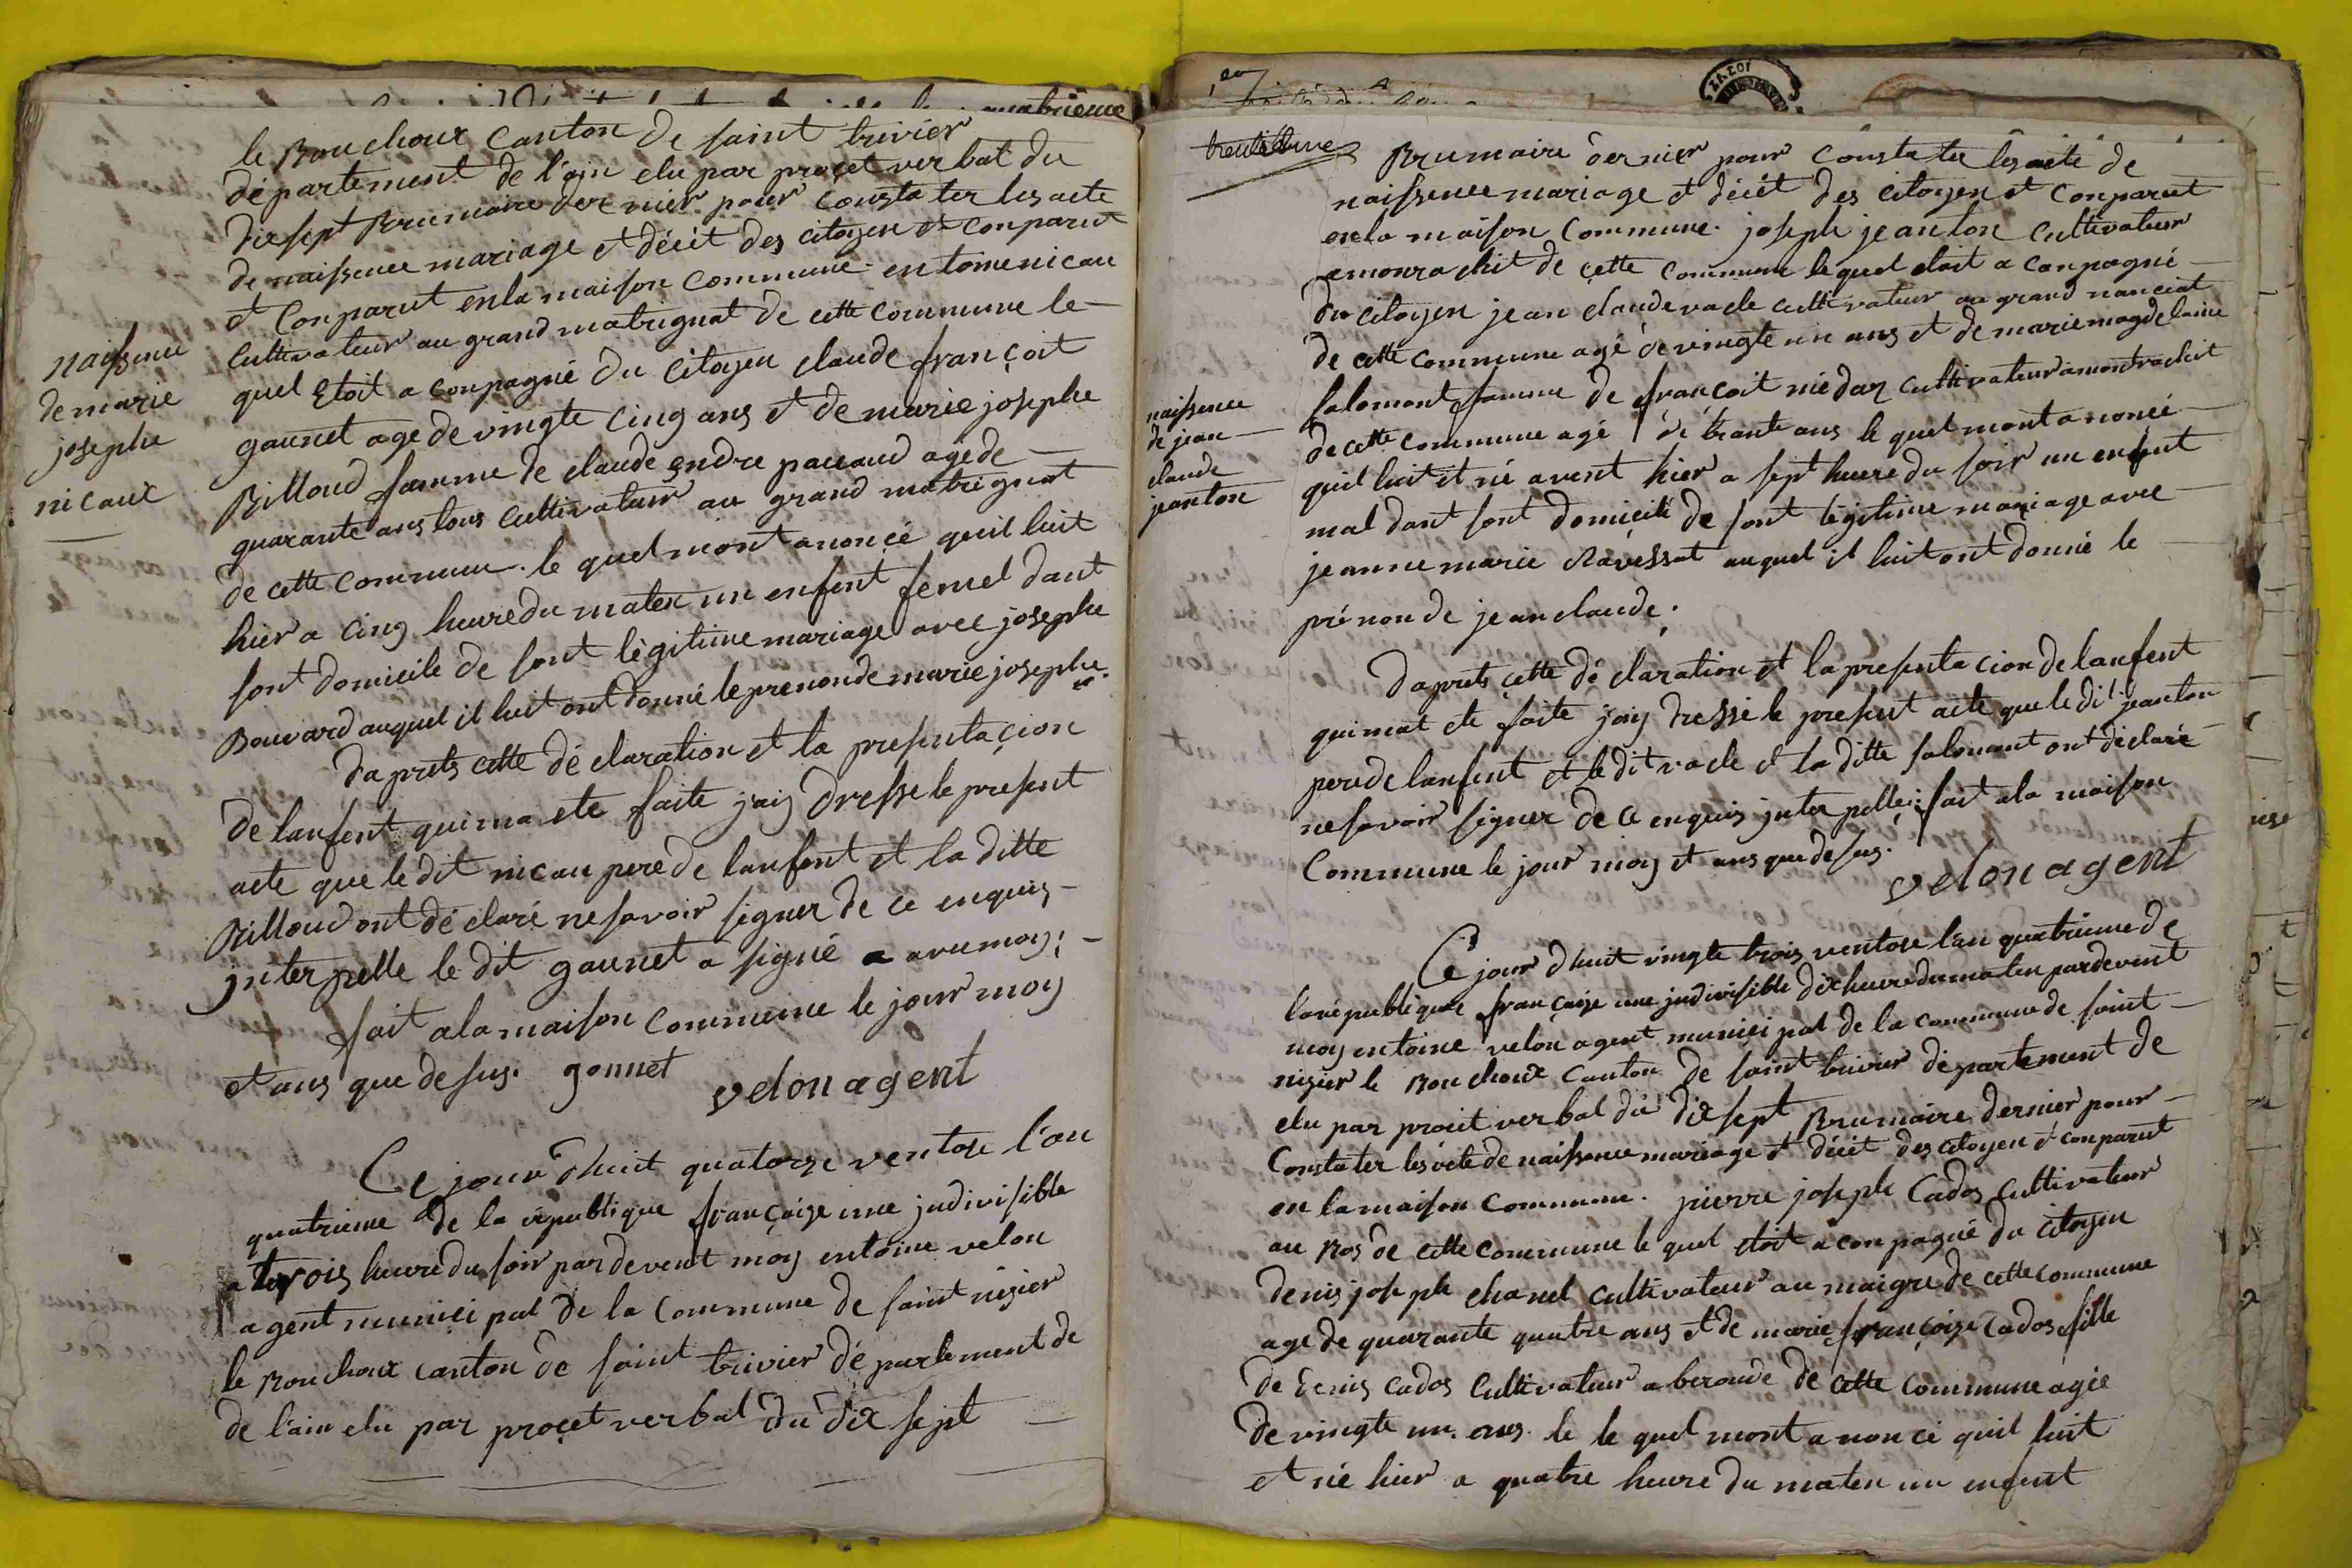 quatrieme
le Bouchoux Canton de saint trivier
département de l'ain elu par proçet verbal du
dixsept Brumaire dernier pour Constater les acte
de naissence mariage et décét des citoyen et conparut
et Conparut en la maison Commune entoine nicau
Cultivateur au grand matrignat de cette commune le
quel etoit a conpagné du Citoyen claude françoit
gaunet age de vingte cinq ans et de marie josephe
Billoud famme de claude endre pauaud age de
quarante ans tous cultivateur au grand matrignat
de cette commune. le quel mont anoncé quil luit
hier a cinq heure du maten un enfent femel dant
sont domicile de sont légitime mariage avec josephe
Bouvard auquel il luit ont donné le prenon de marie josephe.
daprets cette dé claration et la presentacion
de lanfent quima ete faite jaiy dressé le present
acte que le dit nicau pere de lanfent et la ditte
Billoud ont dé claré ne savoir signer de ce enquis
jnterpelle le dit gaunet a signé a avemoy;
fait ala maison commune le jour moy
et ans que desus. gonnet velon agent
Ce jour dhuit quatorze ventose l'an
quatrieme de la république françaize une jndivisible
a trois heure du soir pardevent moy entoine velon
agent munici pal de la Commune de saint nizier
le Bouchoux canton de saint trivier dé partement de
de l'ain elu par proçet verbal du dix sept
naissence
de marie
josephe
nicaux
trentieme
Brumaire dernier pour Constater les acte de
naissence mariage et décét des citoyen et conparut
en la maison Commune. joseph jeanton Cultivateur
amonrachit de cette commune lequel etoit a conpagné
du citoyen jean claude vacle cultivateur au grand nanciat
de cette commune agé de vingte un ans et de marie magdelaine
salomont famme de françoit niedaz cultivateur amontrachit
de cette commune agé de trante ans le quel mont anoncé
quil luit et né avent hier a sept heure du soir un enfent
mal dant sont domicile de sont légitime mariage avec
jeanne marie Ravessat auquel il luit ont donné le
prénon de jean claude.
daprets cette dé claration et la presentacion de lanfent
quimat ete faite jaiy dressé le present acte que le dit jeanton
pere de lanfent et le dit vacle et la ditte salomont ont déclaré
ne savoir signer de ce enquis jnterpelle; fait ala maison
Commune le jour moy et ans que desus.
velon agent
naissence
de jean
claude
jeanton
Ce jour dhuit vingte trois ventose l'an quatrieme de
la république françaize une jndivisible dix heure du maten pardevent
moy entoine velon agent munici pal de la commune de saint
nizier le Bouchoux Canton de saint trivier département de
elu par procét verbal du dix sept Brumaire dernier pour
Constater les acte de naissence mariage et décét des citoyen et conparut
en la maison Commune. pierre joseph Cados Cultivateur
au Bos de cette commune le quel etoit a conpagné du citoyen
denis joseph chanel cultivateur au maigre de cette commune
age de quarante quatre ans et de marie françoize Cados fille
de denis cados Cultivateur a beroude de cette commune agée
de vingte un ans. le le quel mont anoncé quil luit
et né hier a quatre heure du maten un enfent